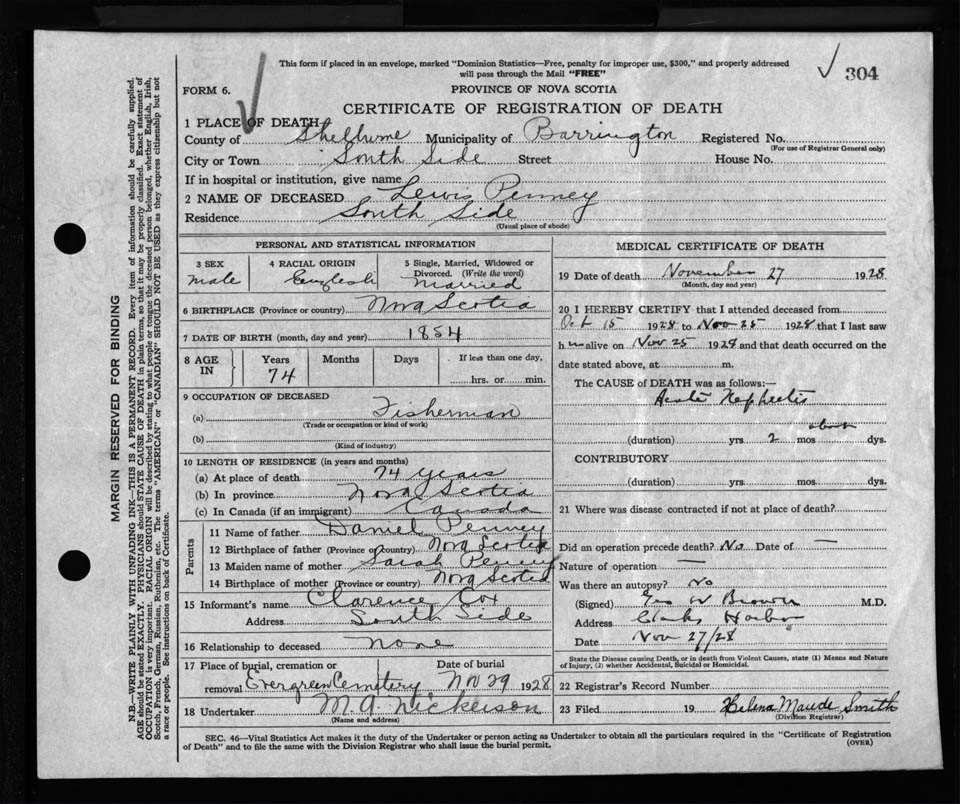 This form if placed in an envelope, marked "Dominion Statistics—Free, penalty for improper use, $300," and properly addressed
will pass through the Mail "FREE"
304
FORM 6.
PROVINCE OF NOVA SCOTIA
CERTIFICATE OF REGISTRATION OF DEATH
1 PLACE OF DEATH
County of Shelburne Municipality of Barrington Registered No.
(For use of Registrar General only)
City or Town South Side Street House No.
If in hospital or institution, give name
2 NAME OF DECEASED Lewis Penney
Residence South Side
(Usual place of abode)
PERSONAL AND STATISTICAL INFORMATION
3 SEX 4 RACIAL ORIGIN 5 Single, Married, Widowed or
Divorced. (Write the word)
male English married
6 BIRTHPLACE (Province or country) Nova Scotia
7 DATE OF BIRTH (month, day and year) 1854
8 AGE IN Years Months Days If less than one day,
74 hrs. or min.
9 OCCUPATION OF DECEASED
(a) Fisherman
(Trade or occupation or kind of work)
(b)
(Kind of industry)
10 LENGTH OF RESIDENCE (in years and months)
(a) At place of death 74 years
(b) In province Nova Scotia
(c) In Canada (if an immigrant) Canada
Parents
11 Name of father Daniel Penney
12 Birthplace of father (Province or country) Nova Scotia
13 Maiden name of mother Sarah Penney
14 Birthplace of mother (Province or country) Nova Scotia
15 Informant's name Clarence Cox
Address South Side
16 Relationship to deceased none
17 Place of burial, cremation or Date of burial
removal Evergreen Cemetery Nov 29 1928
18 Undertaker M. A. Nickerson
(Name and address)
MEDICAL CERTIFICATE OF DEATH
19 Date of death November 27 1928
(Month, day and year)
20 I HEREBY CERTIFY that I attended deceased from
Oct 15 1928 to Nov 25 1928 that I last saw
him alive on Nov 25 1928 and that death occurred on the
date stated above, at m.
The CAUSE of DEATH was as follows:—
Acute Nephritis
about
(duration) yrs 2 mos dys.
CONTRIBUTORY
(duration) yrs. mos. dys.
21 Where was disease contracted if not at place of death?
Did an operation precede death? No Date of —
Nature of operation —
Was there an autopsy? No
(Signed) Geo W Brown M.D.
Address Clarks Harbor
Date Nov 27/28
State the Disease causing Death, or in death from Violent Causes, state (1) Means and Nature
of Injury, (2) whether Accidental, Suicidal or Homicidal.
22 Registrar's Record Number
23 Filed 19 Helena Maude Smith
(Division Registrar)
SEC. 46—Vital Statistics Act makes it the duty of the Undertaker or person acting as Undertaker to obtain all the particulars required in the "Certificate of Registration
of Death" and to file the same with the Division Registrar who shall issue the burial permit.
(OVER)
MARGIN RESERVED FOR BINDING
N.B.—WRITE PLAINLY WITH UNFADING INK—THIS IS A PERMANENT RECORD. Every item of information should be carefully supplied.
AGE should be stated EXACTLY. PHYSICIANS should STATE CAUSE OF DEATH in plain terms, so that it may be properly classified. Exact statement of
OCCUPATION is very important. RACIAL ORIGIN will be described by stating to what people or tongue the deceased person belonged, whether English, Irish,
Scotch, French, German, Russian, Ruthenian, etc. The terms "AMERICAN" or "CANADIAN" SHOULD NOT BE USED as they express citizenship but not
a race or people. See instructions on back of Certificate.